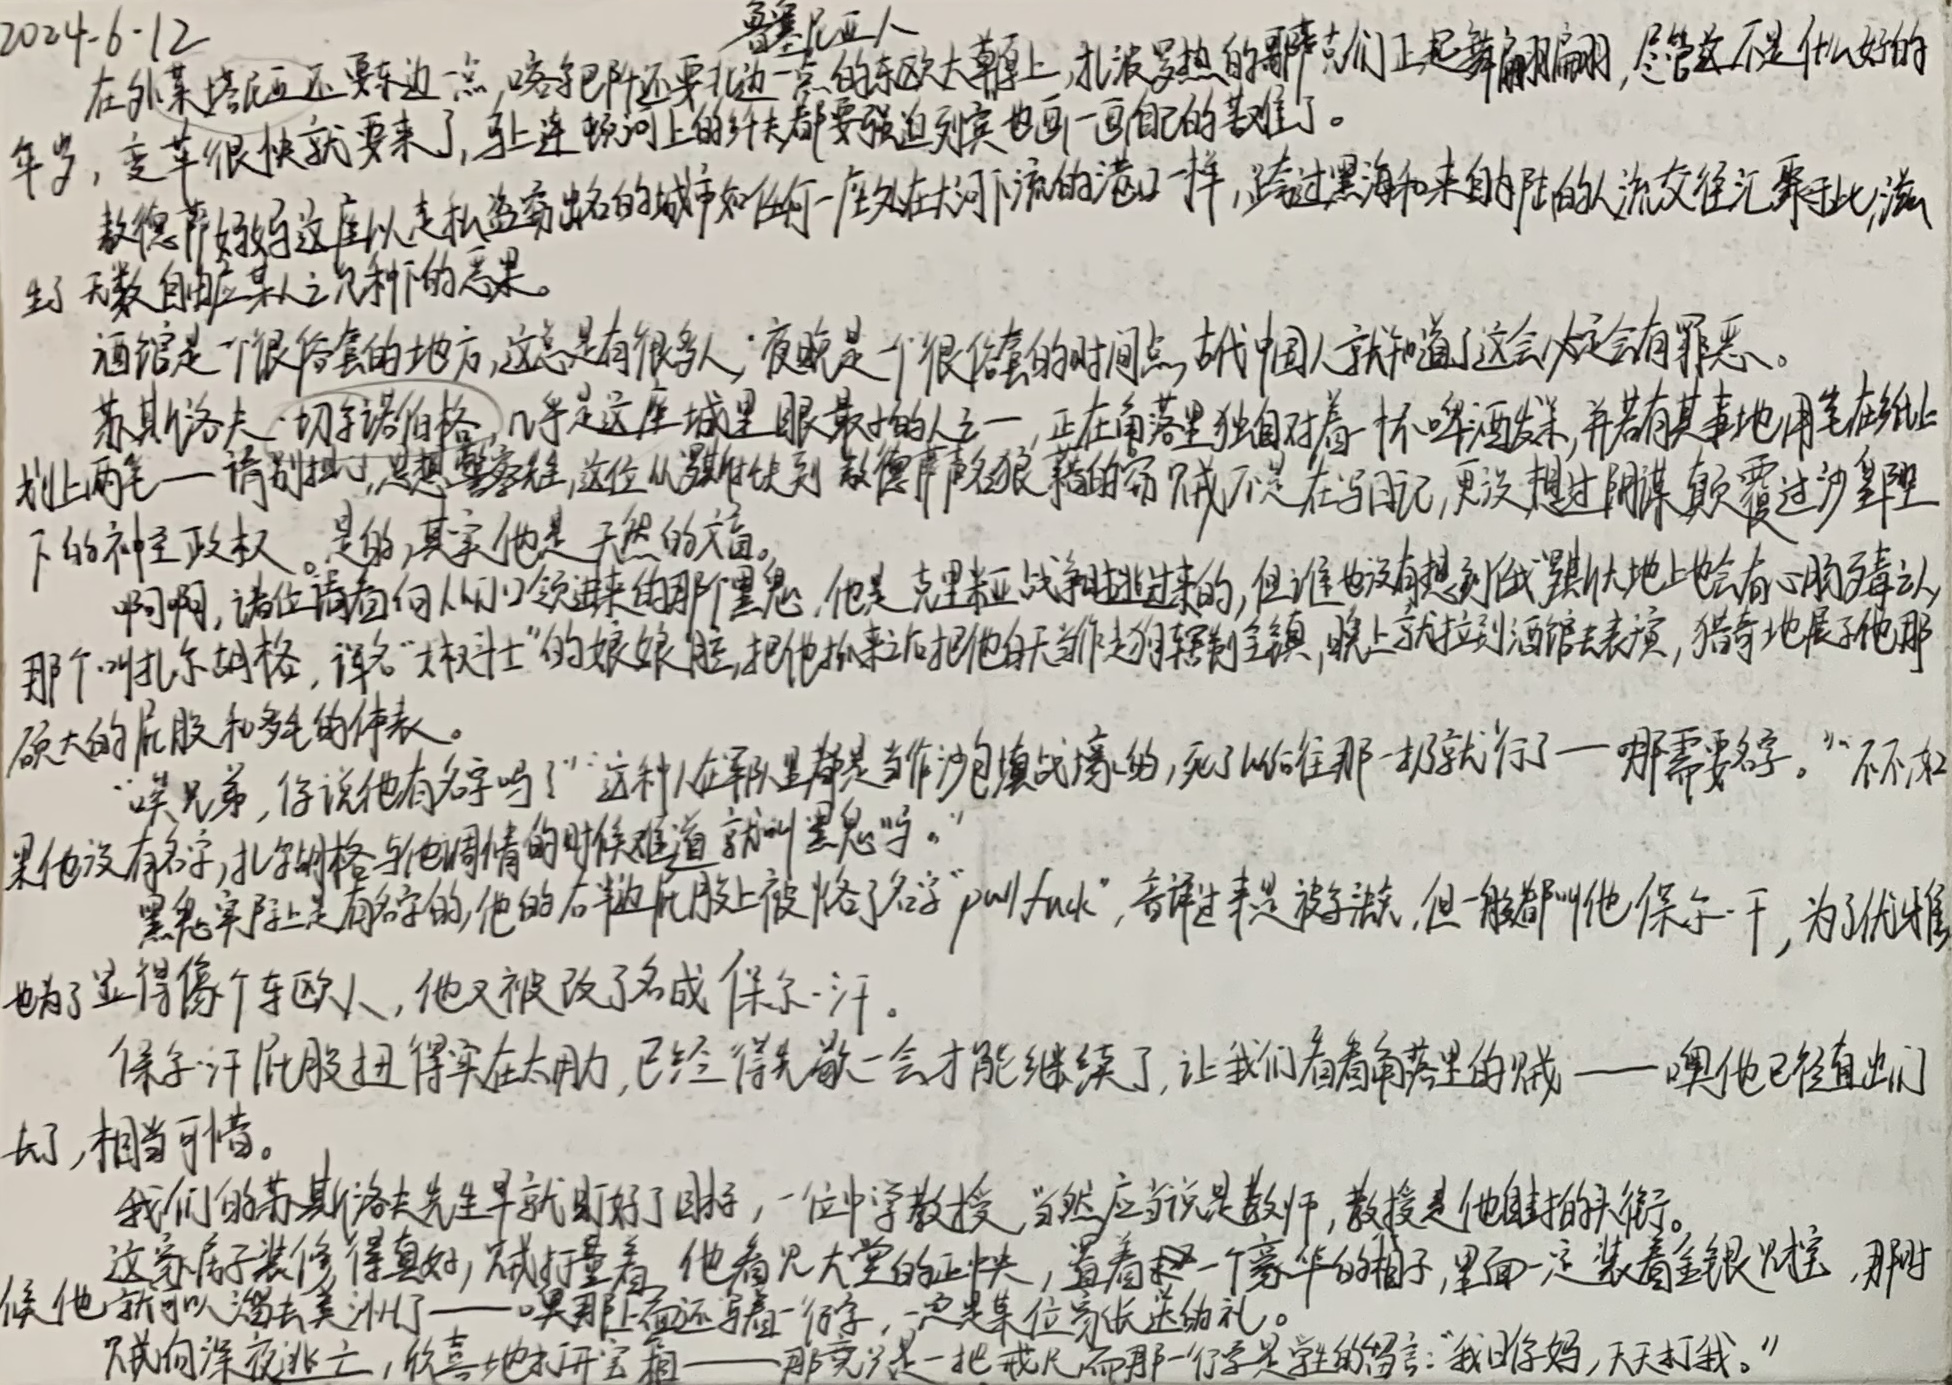 2024-6-12
鲁塞尼亚人
在外莱塔尼亚还要东边一点,喀尔巴阡还要北边一点的东欧大草原上,扎波罗热的哥萨克们正起舞翩翩,尽管这不是什么好的
年岁,变革很快就要来了,马上连顿河上的纤夫都要强迫列宾也画一画自己的苦难了。
敖德萨好好这座以走私盗窃出名的城市如任何一座处在大河下流的港口一样,跨过黑海和来自内陆的人流交往汇聚于此,滋
生了无数自由应某人之兄种下的恶果。
酒馆是一个很俗套的地方,这总是有很多人,夜晚是一个很俗套的时间点,古代中国人就知道了这会必定会有罪恶。
苏斯洛夫·切尔诺伯格,几乎是这座城里眼最好的人之一,正在角落里独自对着一杯啤酒发呆,并若有其事地用笔在纸上
划上两笔——请别担心,思想警察先生,这位从罗斯什大到敖德萨声名狼藉的窃贼不是在写日记,更没想过阴谋颠覆过沙皇陛
下的神圣政权。是的,其实他是天然的文盲。
啊啊,诸位请看向从门口领进来的那个黑鬼,他是克里米亚战争时逃过来的,但谁也没有想到俄罗斯大地上也会有心肠歹毒之人,
那个叫扎尔胡格,译名“大权斗士”的娘娘腔,把他抓来之后把他白天当作走狗辖制全镇,晚上就拉到酒馆去表演,猎奇地展示他那
硕大的屁股和多毛的体表。
“唉兄弟,你说他有名字吗?”“这种人在军队里都是当作沙包填战壕的,死了以后往那一扔就行了——哪需要名字。”“不不,如
果他没有名字,扎尔胡格与他调情的时候难道就叫黑鬼吗。”
黑鬼实际上是有名字的,他的右半边屁股上被烙了名字“pull fuck”,音译过来是被尔法克,但一般都叫他保尔·干,为了优雅
也为了显得像个东欧人,他又被改了名成保尔·汗。
保尔·汗屁股扭得实在太用力,已经得先歇一会才能继续了,让我们看看角落里的贼——噢他已经直出门
去了,相当可惜。
我们的苏斯洛夫先生早就盯好了目标,一位中学教授,当然应当说是教师,教授是他自封的头衔。
这家房子装修得真好,贼打量着,他看见大堂的正中央,置着一个豪华的箱子,里面一定装着金银财宝,那时
候他就可以溜去美洲了——噢那上面还写着一行字,一定是某位家长送的礼。
贼向深夜逃亡,欣喜地打开宝箱——那竟只是一把戒尺而那一行字是学生的留言:“我日你妈,天天打我。”